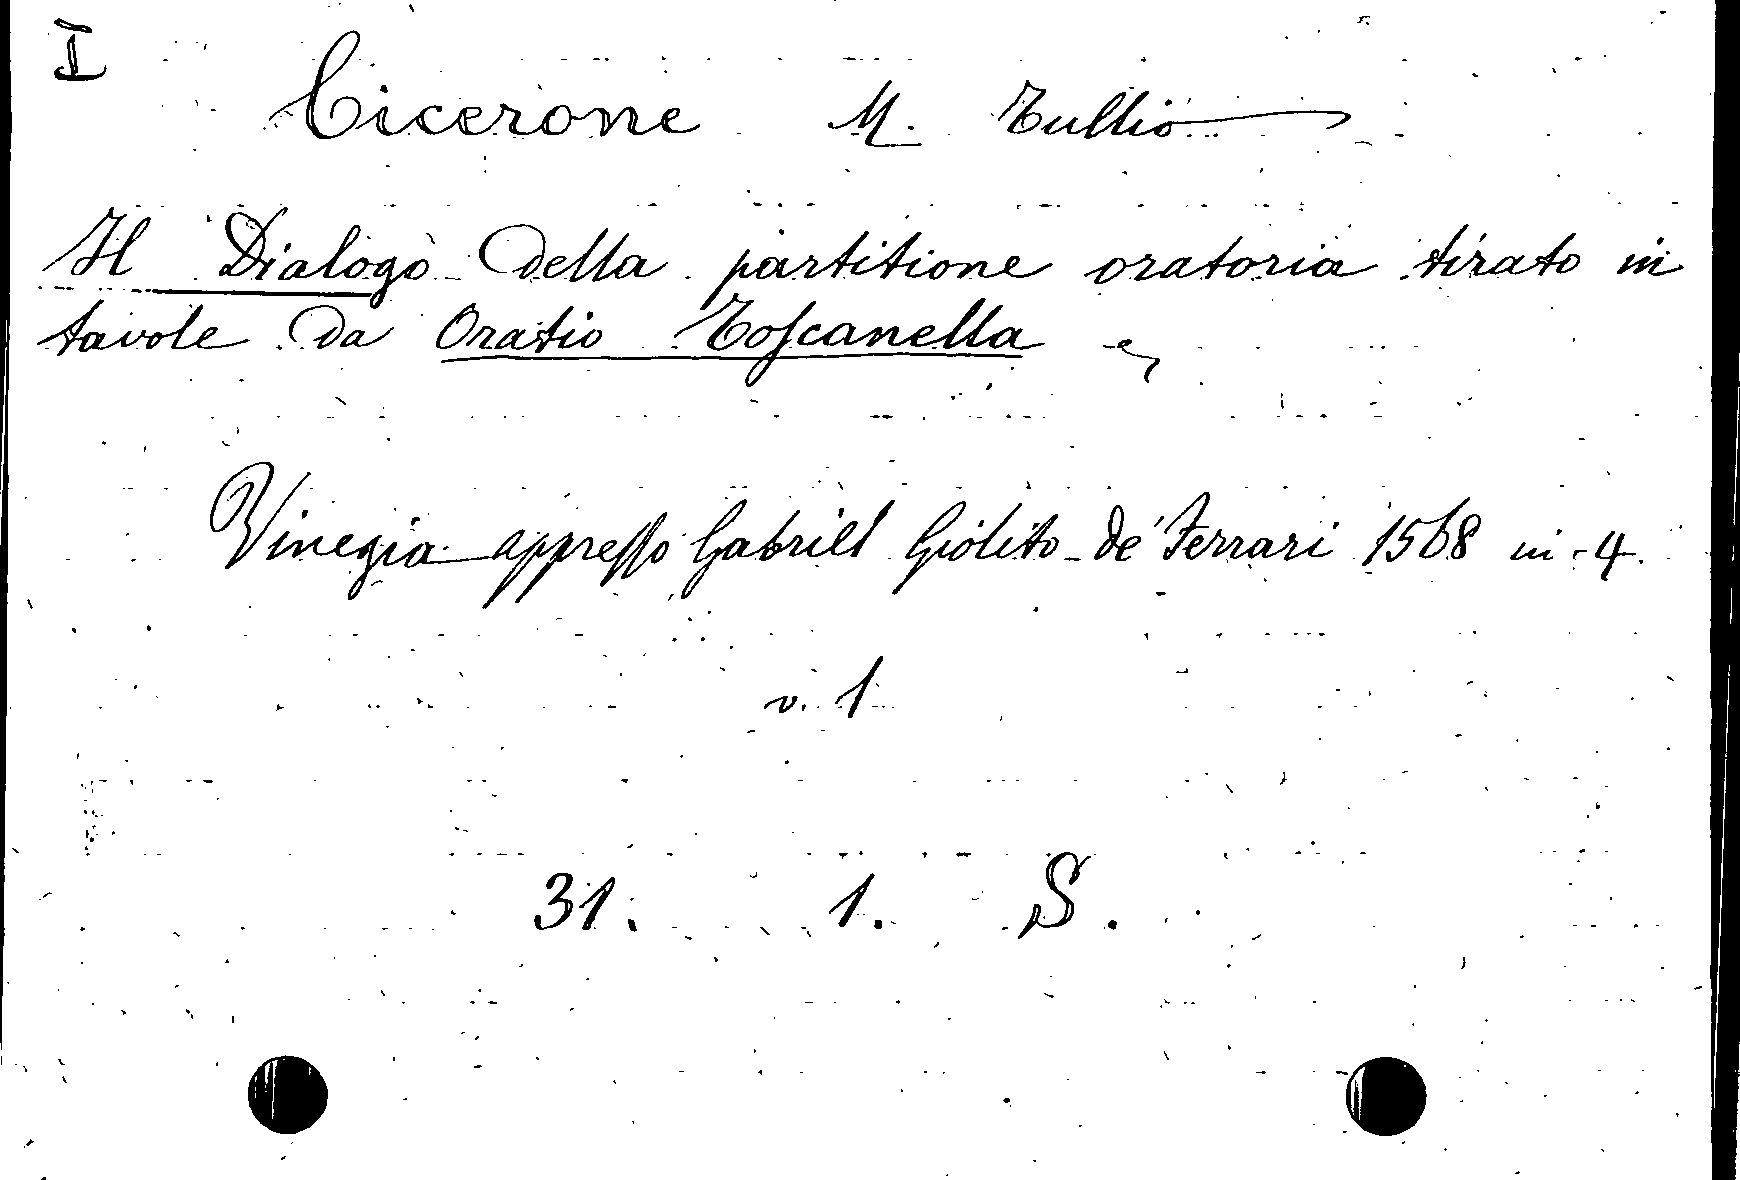 I
Cicerone M. Tullio
Il Dialogo della partitione oratoria tirato in
tavole da Oratio Toscanella
Vinegia appresso Gabriel Giolito de' Ferrari 1568 in-4.
v. 1
31. 1. S.